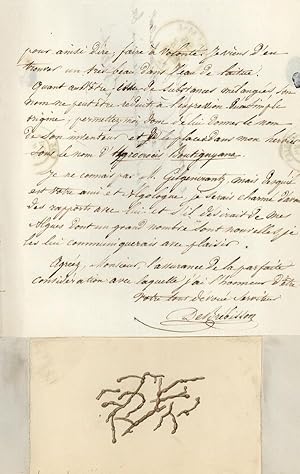 pour ainsi dire, faire à volonté. Je viens d'en
trouver un très beau dans l'eau de laitue.
Quant à votre de substances mélangées son
nom ne peut être réduit à l'expression simple
origine, permettez moi donc de lui donner le nom
de son inventeur et de le placer dans mon herbier
sous le nom d'hygrocrocis
Je ne connais pas M. mais puisqu'il
est votre ami et Algologue, je serais charmé d'avoir
des rapports avec lui et s'il désirait de mes
Algues dont un grand nombre sont nouvelles je
les lui communiquerais avec plaisir.
Agréez, Monsieur l'assurance de la parfaite
considération avec laquelle j'ai l'honneur d'être
Votre tout dévoué serviteur
De Brébisson